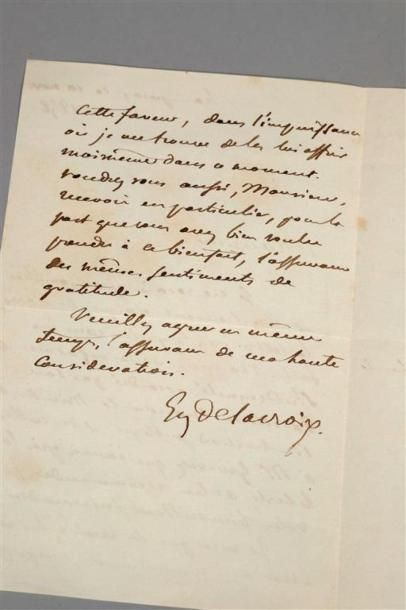 cette faveur, dans l'impuissance
où je me trouve de les lui offrir
moi même dans ce moment.
voudrez vous aussi, Monsieur,
recevoir en particulier, pour la
part que vous avez bien voulu
prendre à ce bienfait, l'assurance
des mêmes sentiments de
gratitude.
Veuillez agréer en même
temps, l'assurance de ma haute
considération.
Eug Delacroix.